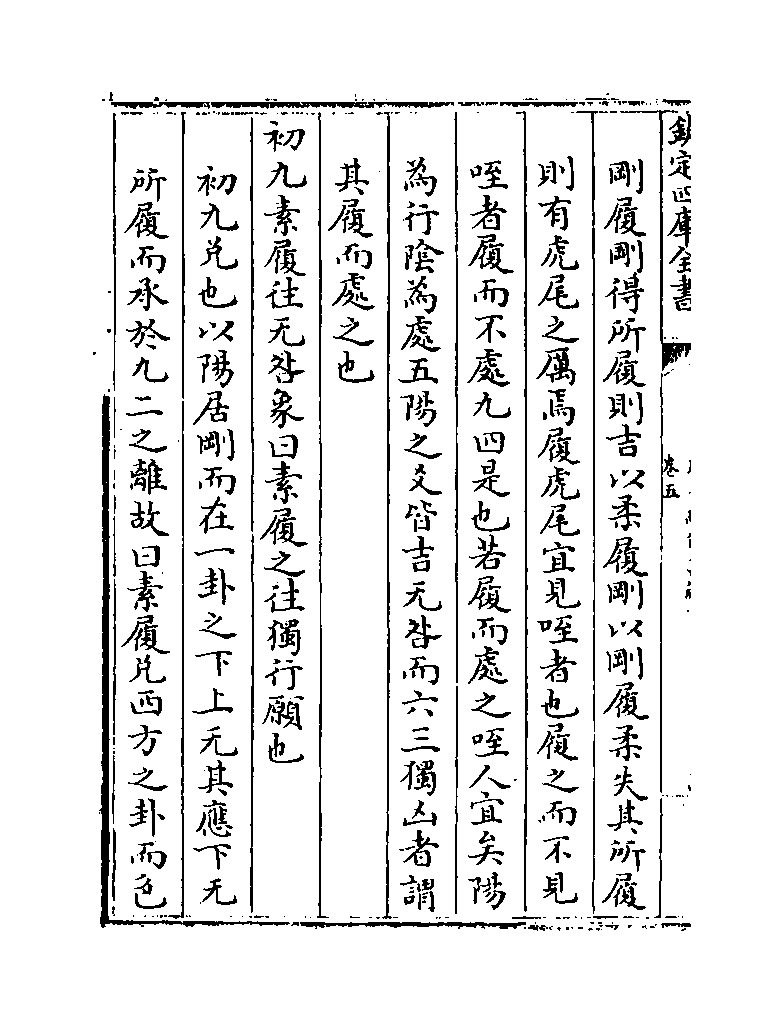 欽定四庫全書
卷五
剛履剛得所履則吉以柔履剛以剛履柔失其所履
則有虎尾之厲焉履虎尾宜見咥者也履之而不見
咥者履而不處九四是也若履而處之咥人宜矣陽
為行陰為處五陽之爻皆吉无咎而六三獨凶者謂
其履而處之也
初九素履往无咎象曰素履之往獨行願也
初九兌也以陽居剛而在一卦之下上无其應下无
所履而承於九二之離故曰素履兌西方之卦而色